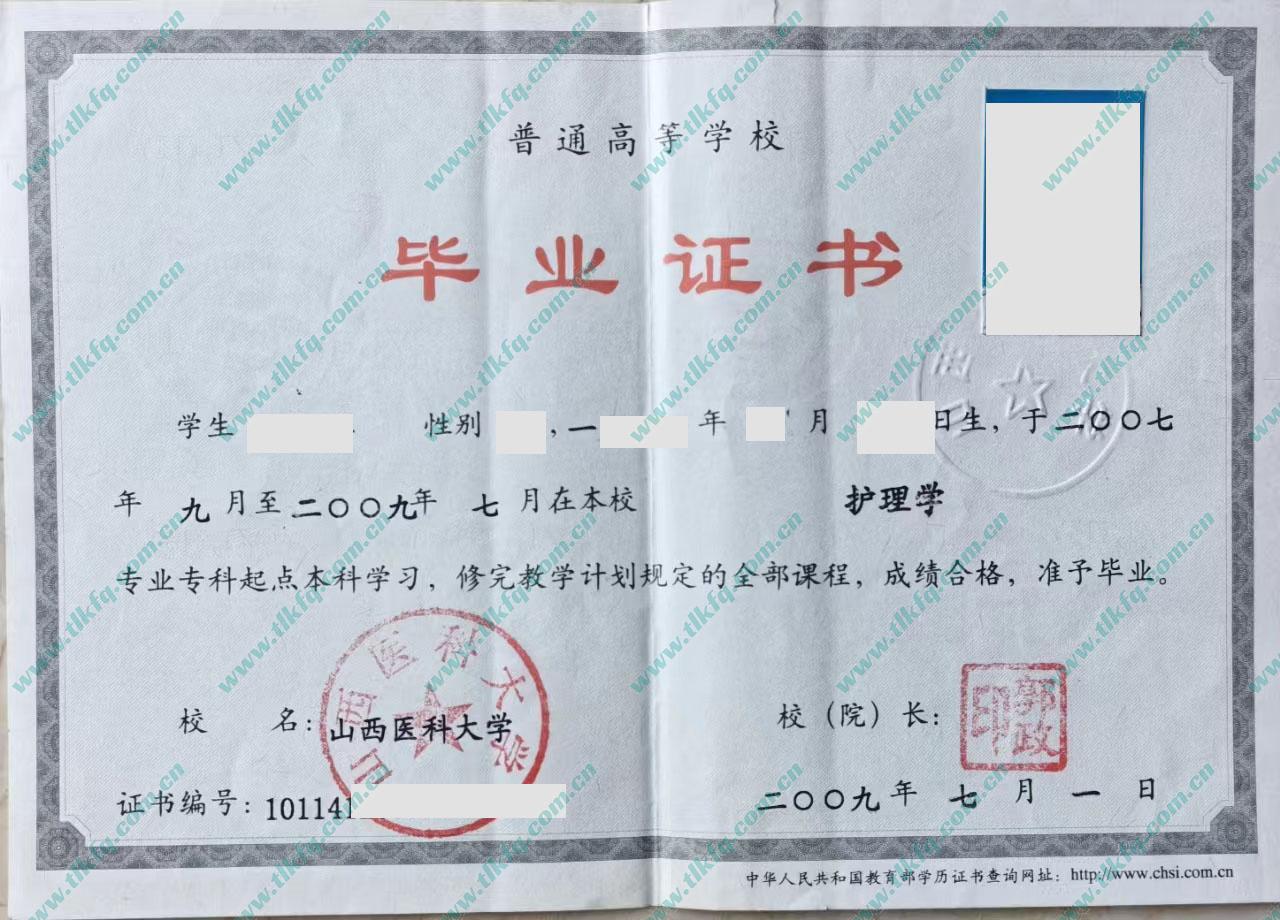 普通高等学校
毕业证书
学生 性别 ,一 年 月 日生，于二〇〇七
年 九月至二〇〇九年 七月在本校 护理学
专业专科起点本科学习，修完教学计划规定的全部课程，成绩合格，准予毕业。
山西医科大学
校 名：山西医科大学
校（院）长：
郭政印
证书编号：101141
二〇〇九年 七月 一日
中华人民共和国教育部学历证书查询网址：http://www.chsi.com.cn
www.tlkfq.com.cn